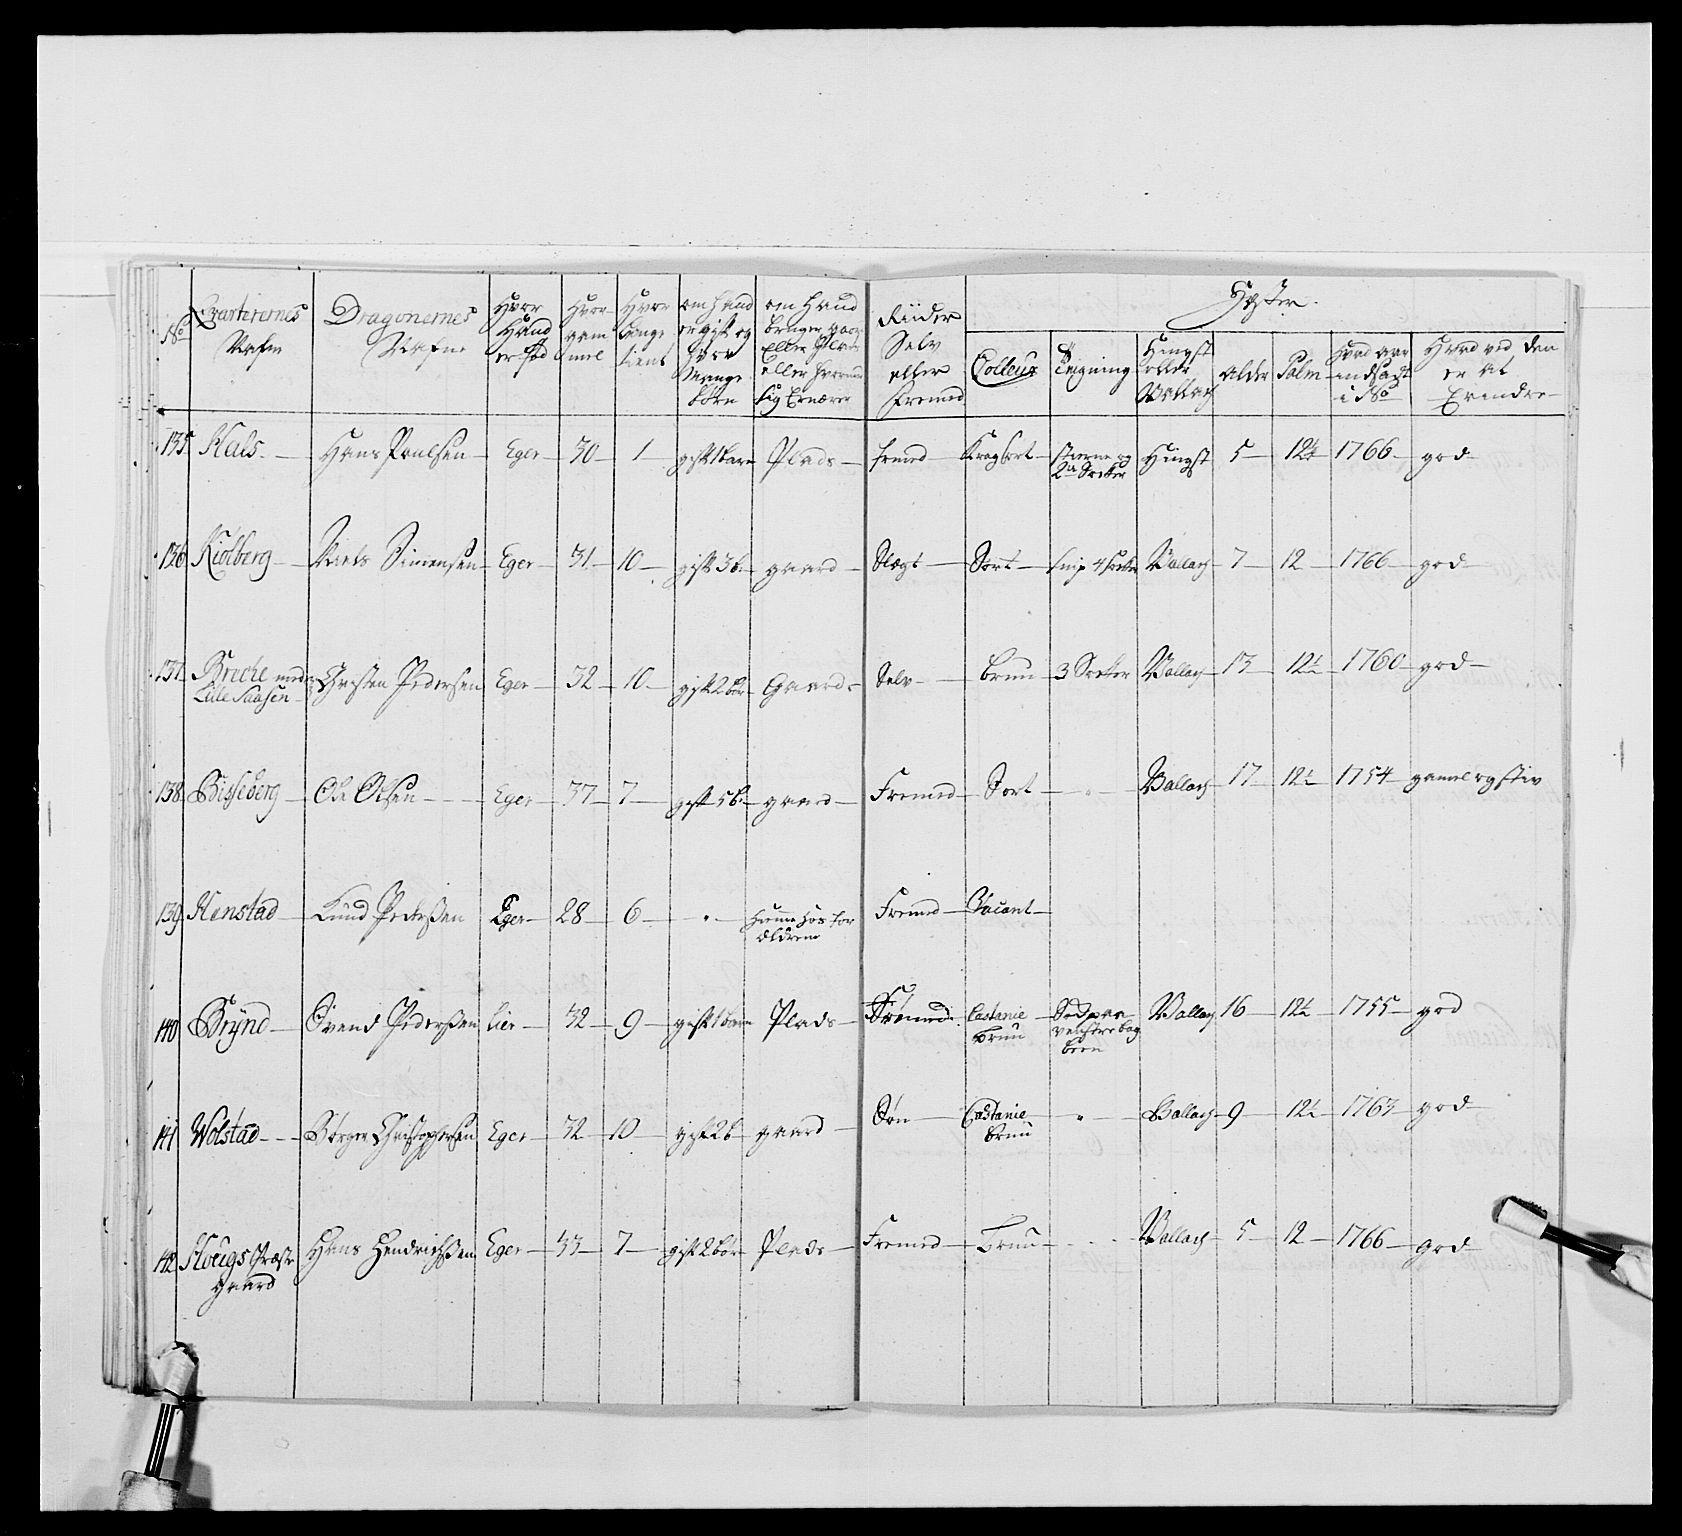 No
Qvarterernes Nafn
Dragonernes Nafne
Hvor Hand er fød
Hvor gam mel
Hvor Længe tient
om hand er gift og hvor Mange børn
om Hand bruger gaar Eller Plads eller hvormed sig Ernærer
Riider Selv eller Fremed
Hester.
Colleur
Teigning
Hingst eller Vallach
Alder
Palm
hvad aar indsadt i No
Hvad ved den er at Erindre
135 Hals Hans Poulsen Eger 30 1 gift 1 barn Plads fremed Kragsort stierne og 2de Sokker Hingst 5 12¼ 1766 god
136 Kiolberg Niels Simensen Eger 31 10 gift 3 b. gaard Slegt Sort snip 4 Sokker Vallach 7 12 1766 god
137 Breche med Lille Saasen Christen Pedersen Eger 32 10 gift 2 bør Gaard Selv brun 3 Sokker Vallach 13 12½ 1760 god
138 Bisseberg Ole Olsen Eger 37 7 gift 5 b. gaard Fremed Sort " Vallach 17 12½ 1754 gamel og stiv
139 Henstad Knud Pedersen Eger 28 6 " hiemme hos for ældrene Fremed Vacant
140 Brÿnd Svend Pedersen Lier 32 9 gift 1 barn Plads Fremed Castanie Brun Sod paa venstre bag been Vallach 16 12½ 1755 god
141 Wolstad Børger Christophersen Eger 32 10 gift 2 b gaard Søn Castanie brun " Vallach 9 12½ 1763 god
142 Hougs Præste gaard Hans Hendrichsen Eger 33 7 gift 2 bør Plads Fremed brun Vallach 5 12 1766 god